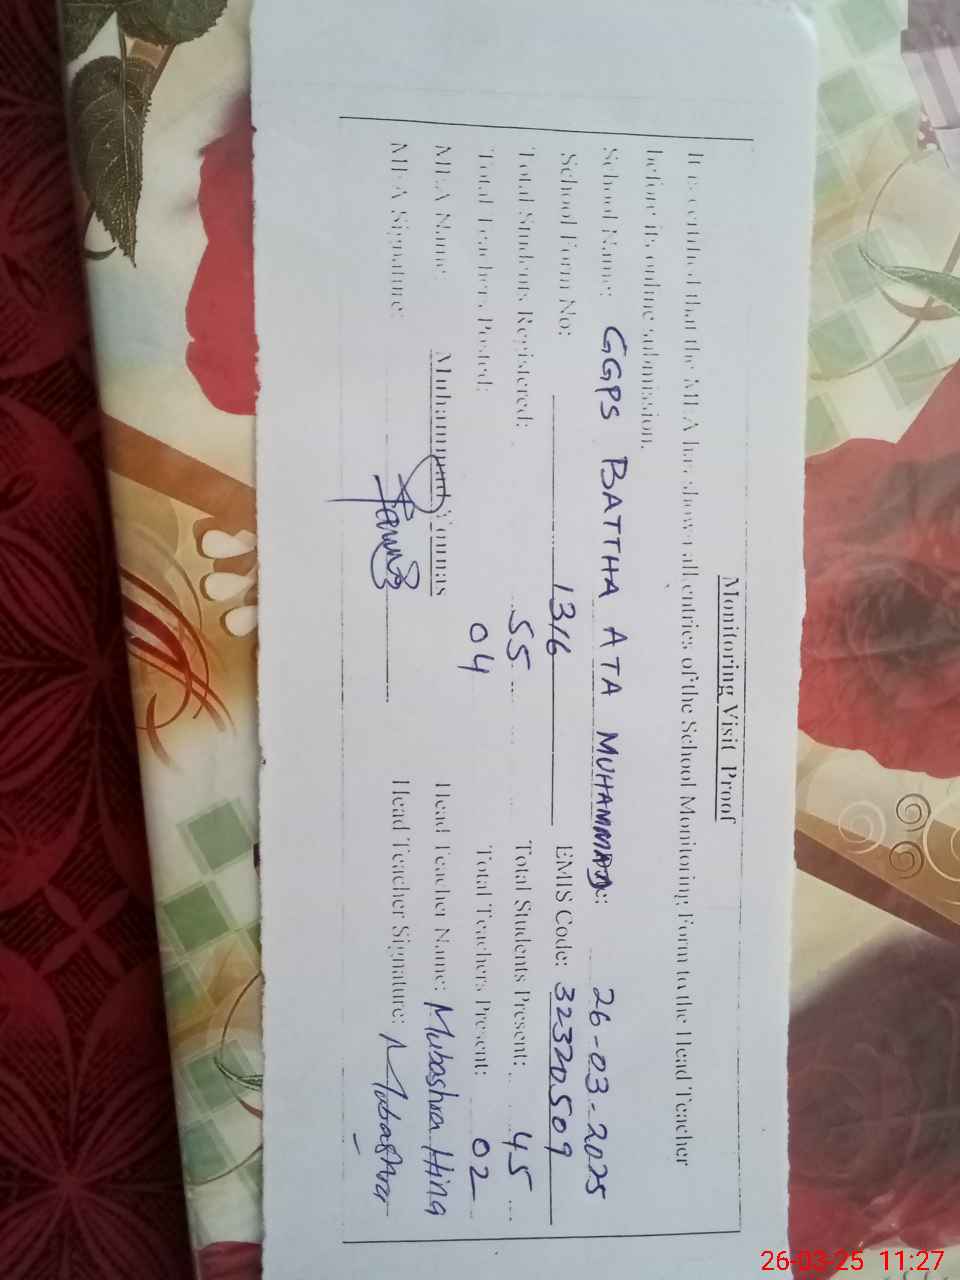 Monitoring Visit Proof
It is certified that the MEA has shown all entries of the School Monitoring Form to the Head Teacher
before its online submission.
School Name: GGPS BATTHA ATA MUHAMMAD : 26-03-2025
School Form No: 1316 EMIS Code: 32320509
Total Students Registered: 55 Total Students Present: 45
Total Teachers Posted: 04 Total Teachers Present: 02
MEA Name: Muhammad Younas Head Teacher Name: Mubashra Hina
MEA Signature: Head Teacher Signature: Mubashra
26-03-25 11:27